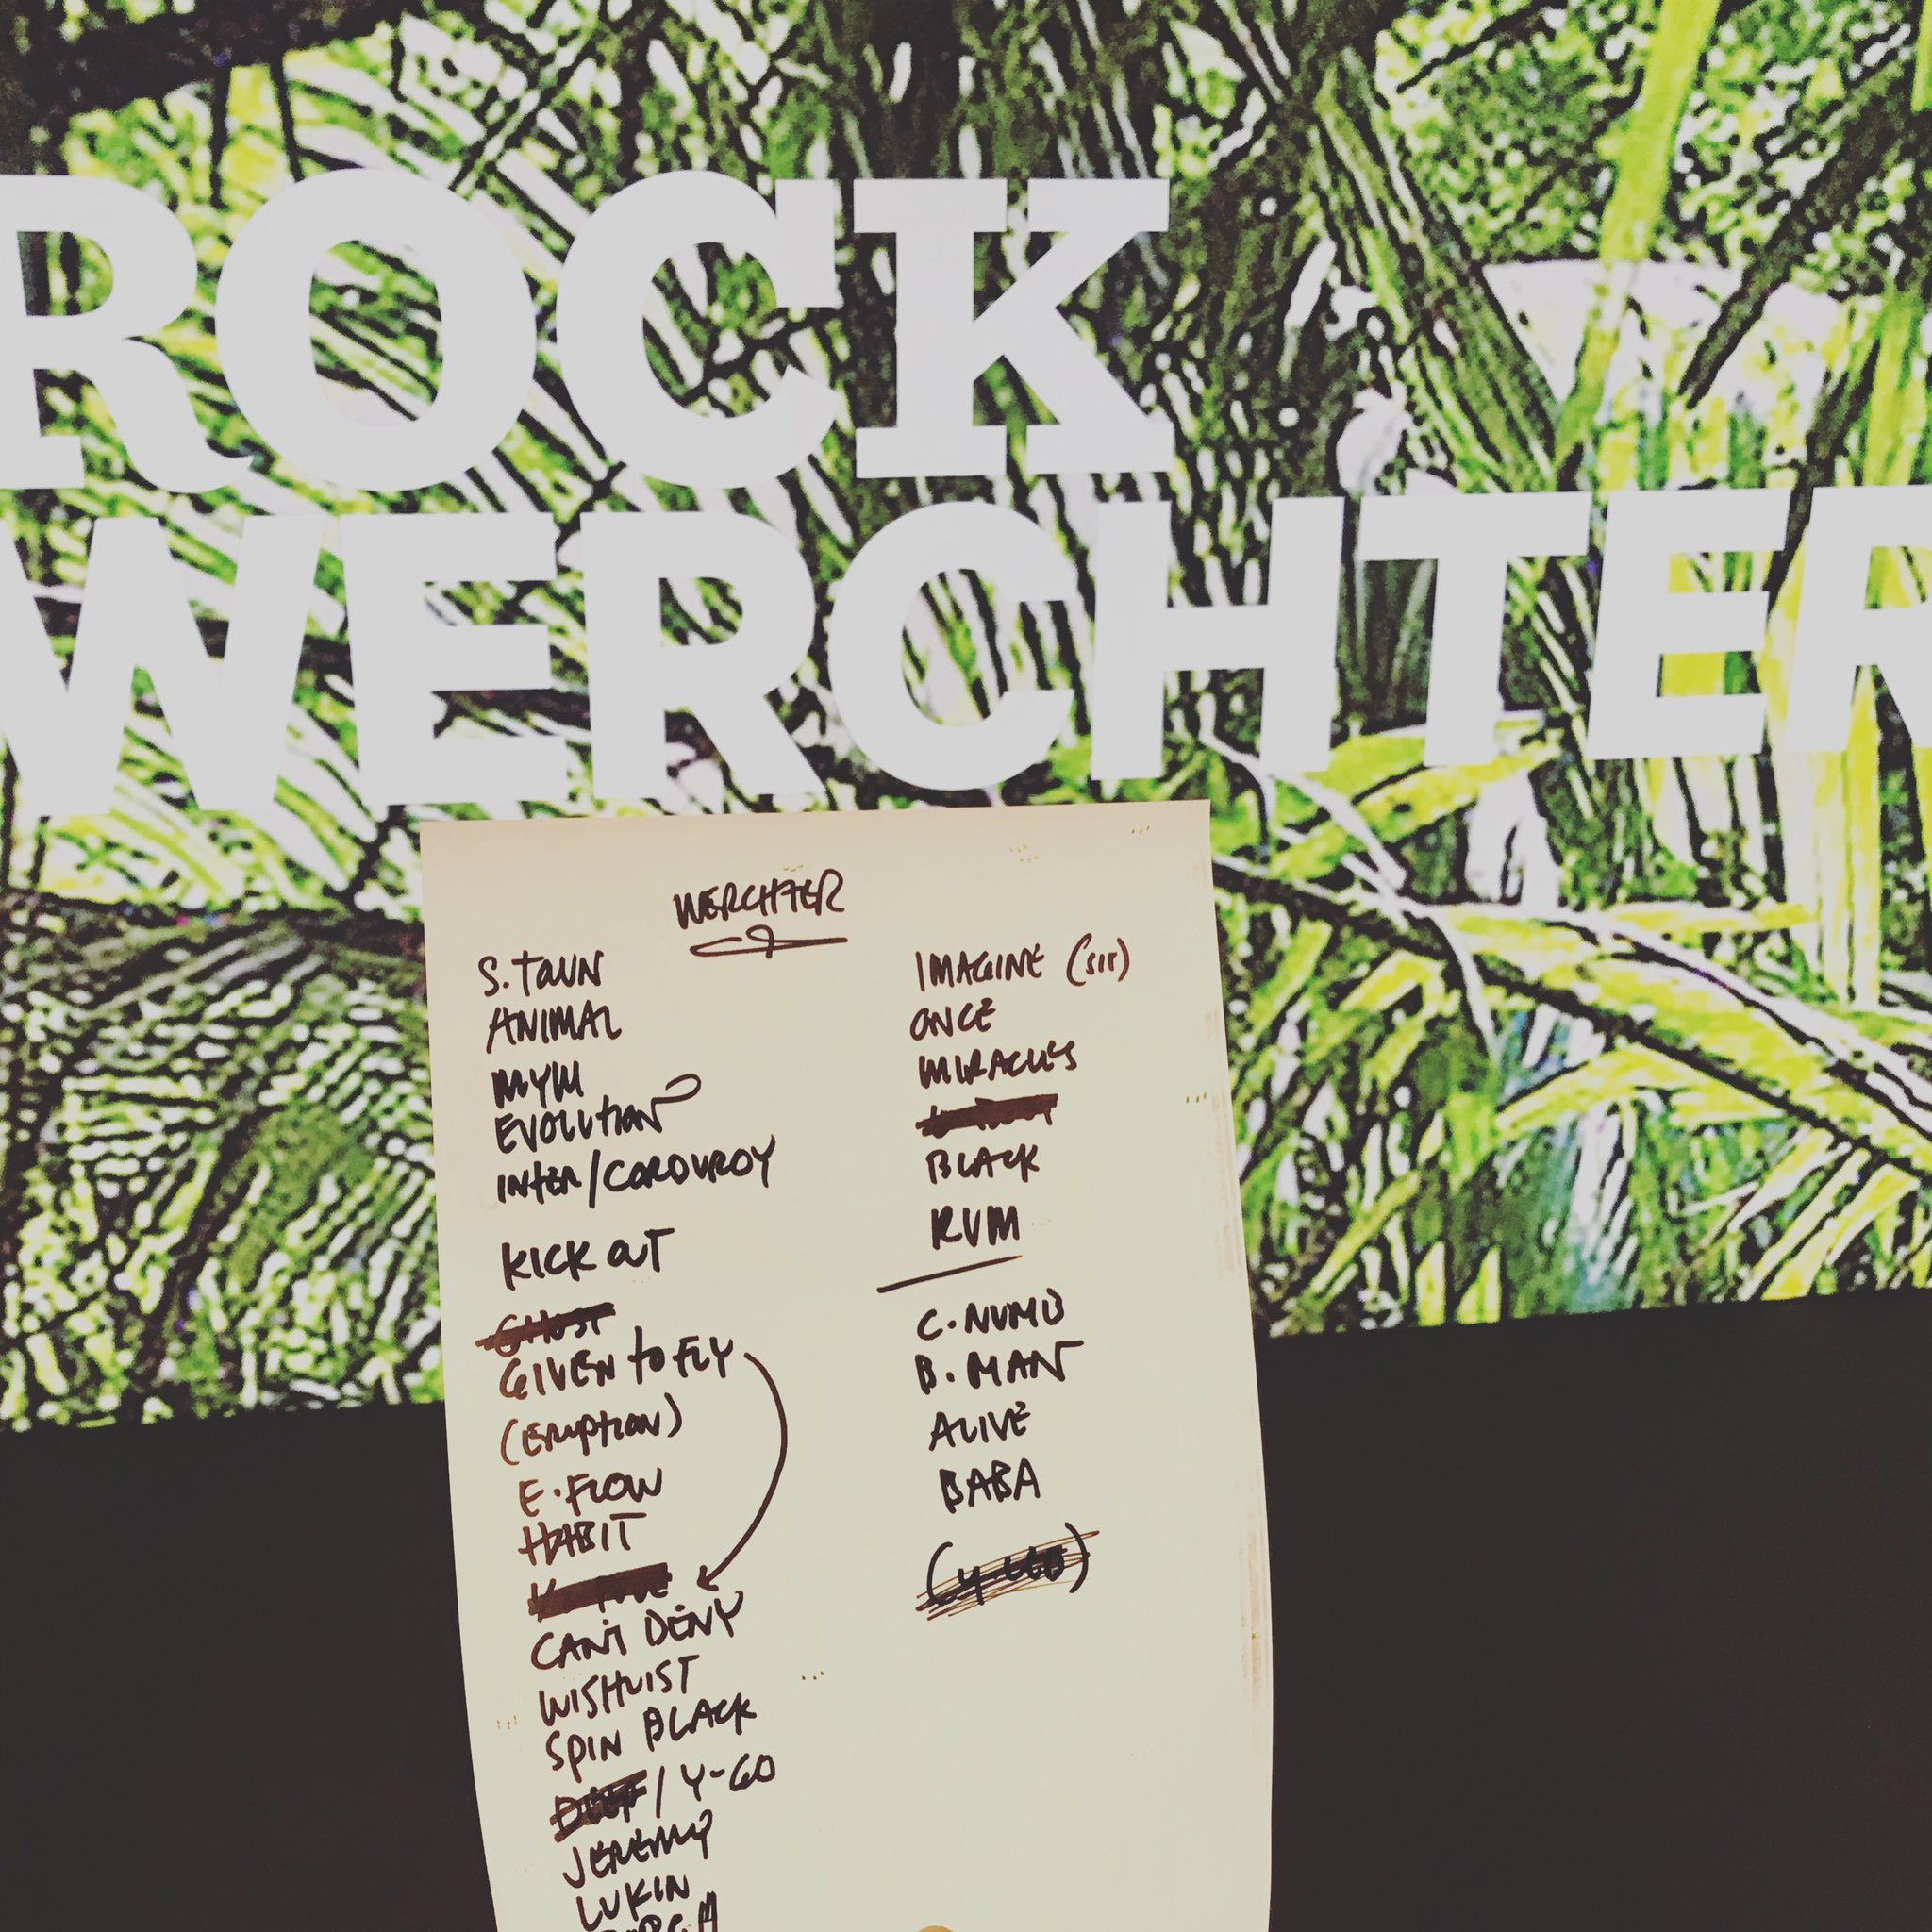 ROCK
WERCHTER
WERCHTER
S. TOWN
ANIMAL
MYM
EVOLUTION
INTER/CORDUROY
KICK OUT
GHOST
GIVEN to FLY
(ERUPTION)
E. FLOW
HABIT
CAN'T DENY
WISHLIST
SPIN BLACK
/ Y-GO
JEREMY
LUKIN
PORCH
IMAGINE (SIS)
ONCE
MIRACLES
BLACK
RVM
C. NUMB
B. MAN
ALIVE
BABA